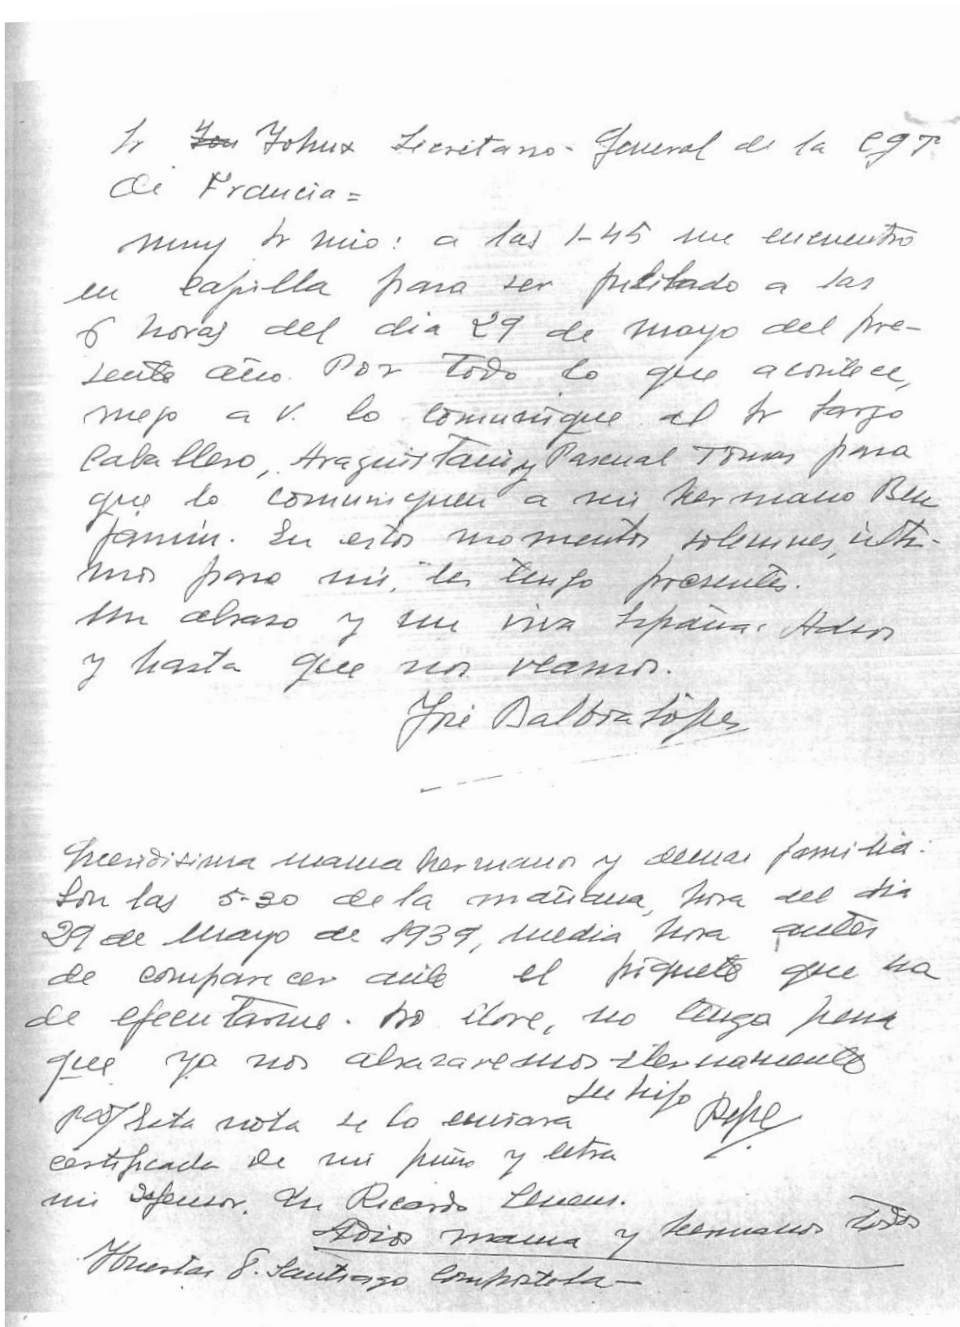 Sr Johux Secretario-General de la CGT
de Francia=
muy Sr mio: a las 1-45 me encuentro
en capilla para ser fusilado a las
6 horas del dia 29 de mayo del pre-
sente año. Por todo lo que acontece,
ruego a V. lo comunique al Sr Largo
Caballero, Araquistain y Pascual Tomas para
que lo comuniquen a mi hermano Ben
jamin. En estos momentos solemnes, ulti-
mos para mi, les tengo presentes.
Un abrazo y un viva España. Adios
y hasta que nos veamos.
José Balboa López
Queridisima mama hermanos y demas familia:
Son las 5-30 de la mañana, hora del dia
29 de Mayo de 1939, media hora antes
de comparecer ante el piquete que ha
de efecutarme. No llore, no tenga pena
que ya nos abrazaremos eternamente
su hijo Pepe
Esta nota se lo enviara
certificada de mi puño y letra
mi defensor. Dn Ricardo
Adios mama y hermanos todos
Huertas 8. Santiago Compostela-